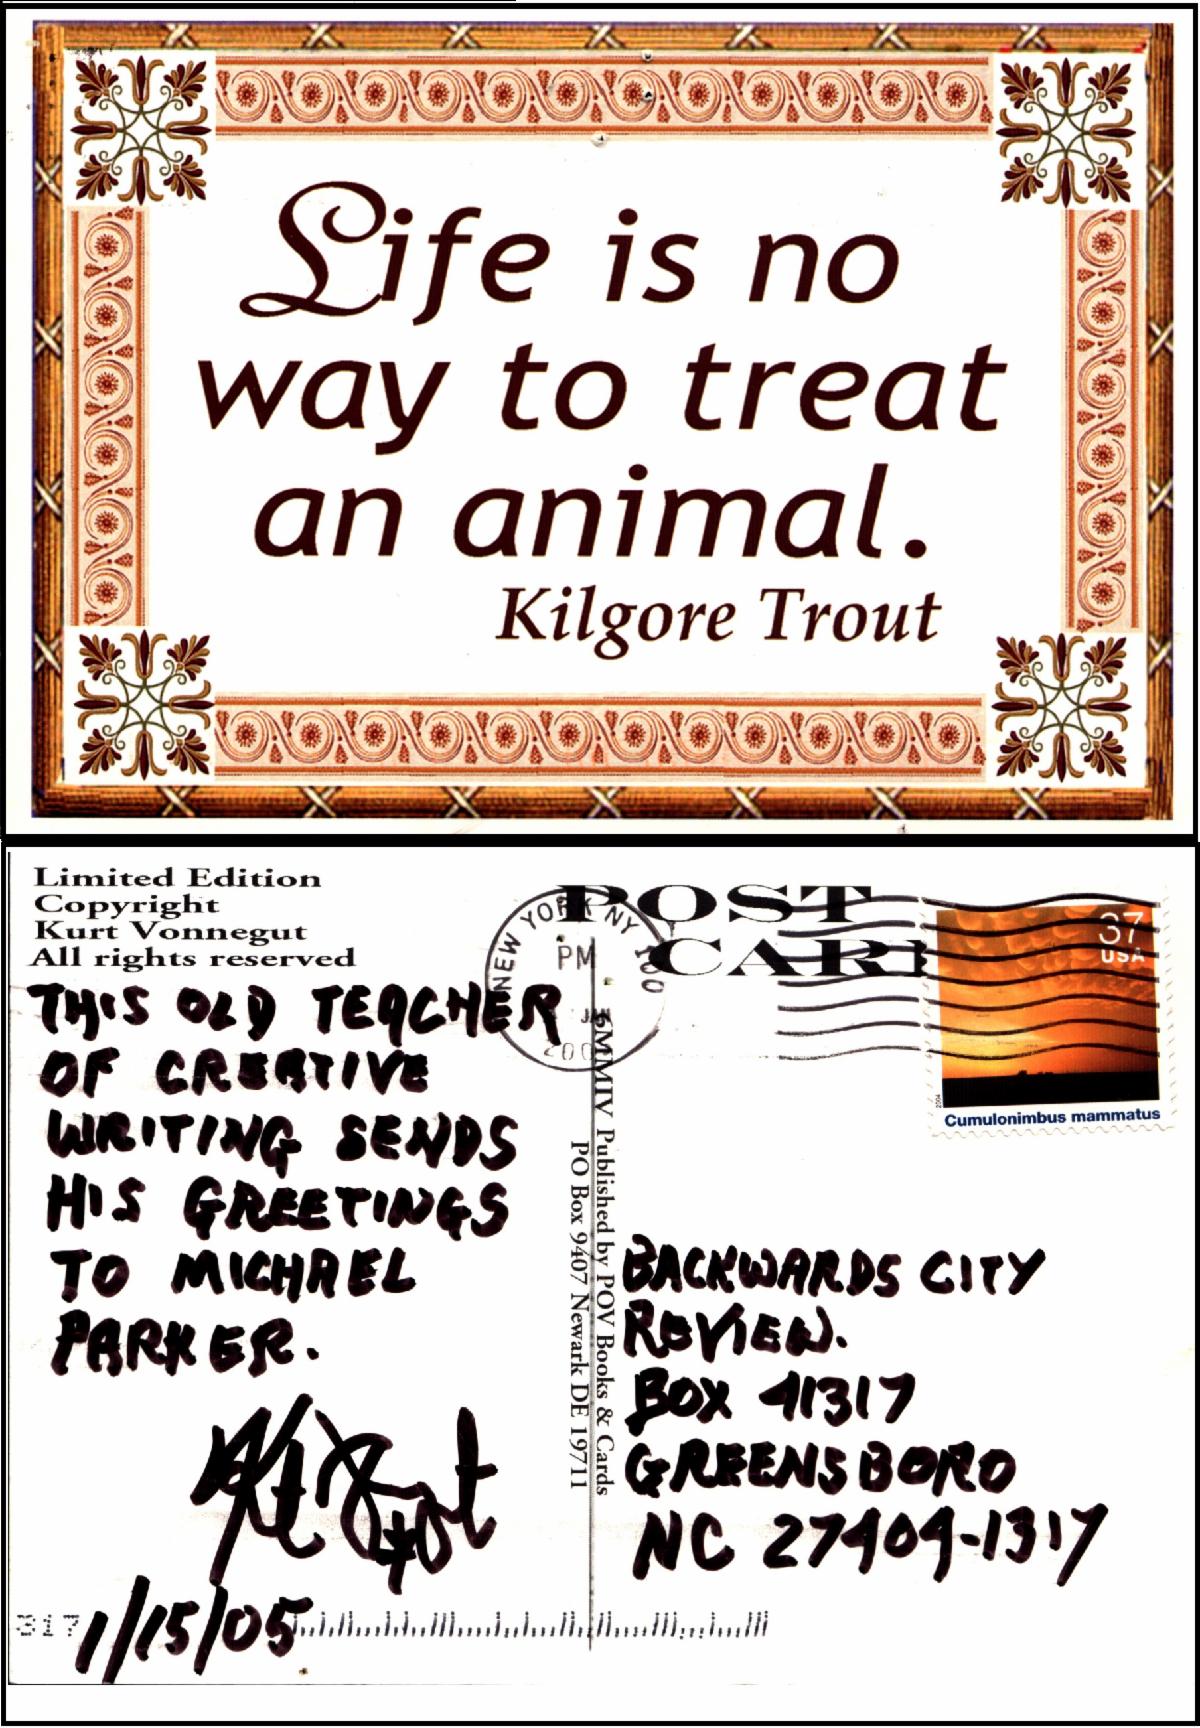 Life is no
way to treat
an animal.
Kilgore Trout
Limited Edition
Copyright
Kurt Vonnegut
All rights reserved
THIS OLD TEACHER
OF CREATIVE
WRITING SENDS
HIS GREETINGS
TO MICHAEL
PARKER.
1/15/05
317
MMIV Published by POV Books & Cards
PO Box 9407 Newark DE 19711
POST
CAR
NEW YORK NY 100
PM
JAN
200
37
USA
2004
Cumulonimbus mammatus
BACKWARDS CITY
REVIEW.
BOX 41317
GREENSBORO
NC 27404-1317